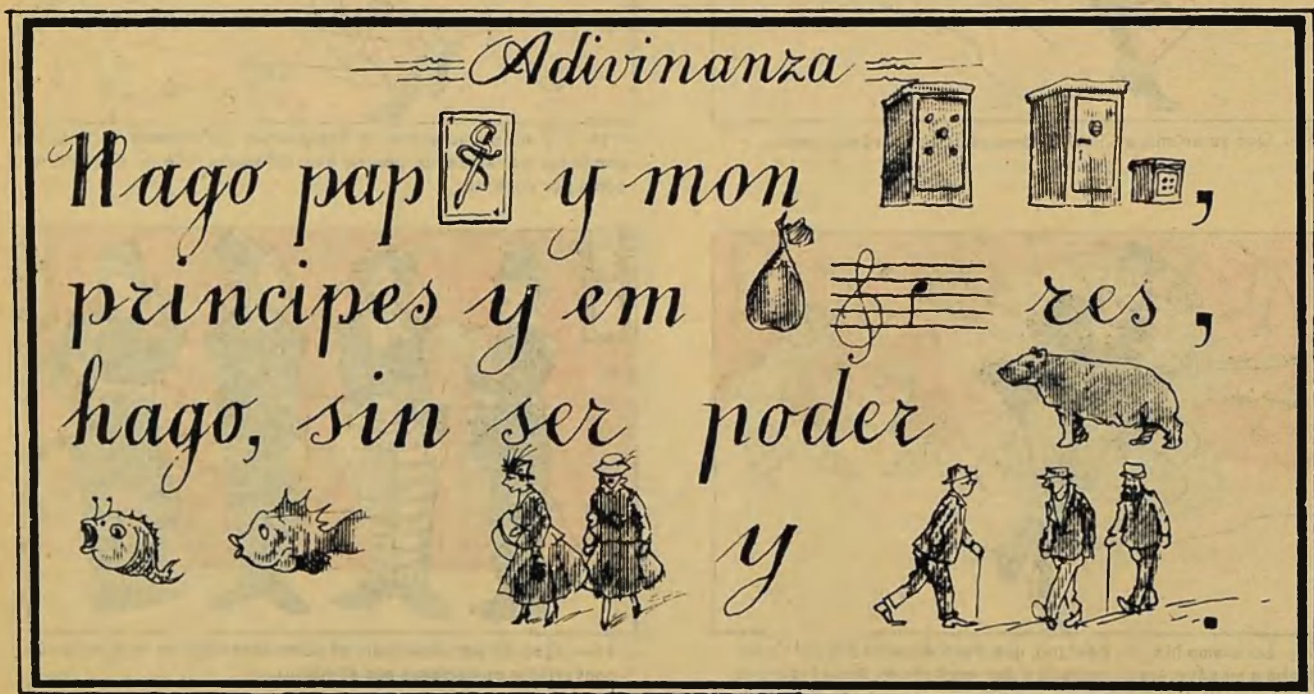 Adivinanza
Hago pap y mon ,
principes y em res ,
hago, sin ser poder
y .